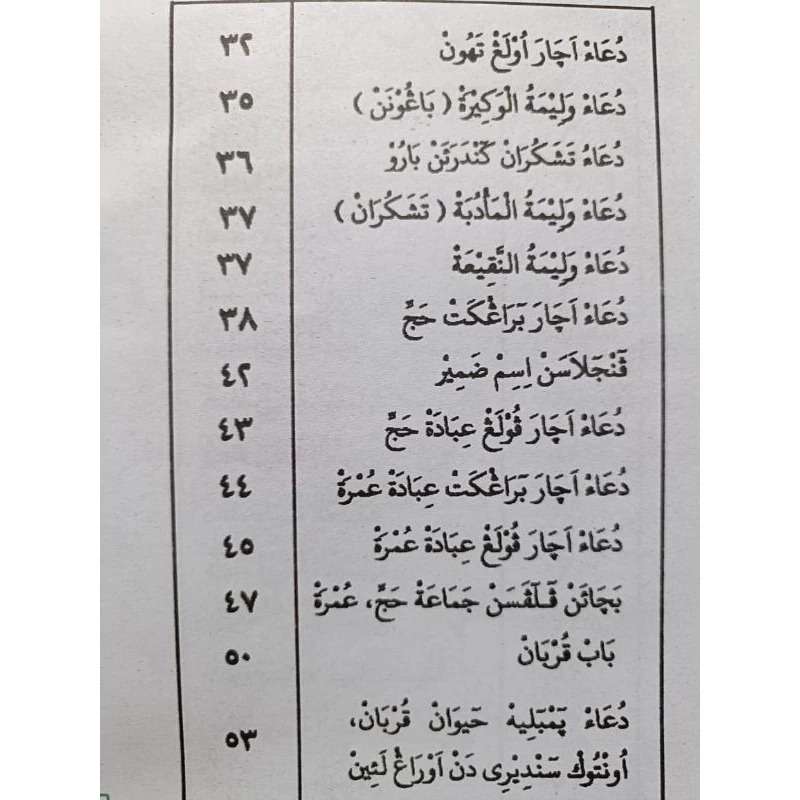 دُعَاءْ اَچَارَ اُوْلَڠْ تَهُونْ ٣٢
دُعَاءْ وَلِيْمَةُ الْوَكِيْرَةْ ( بَاڠُوْنَنْ ) ٣٥
دُعَاءُ تَشَكُرَانْ كَنْدَرَئَنْ بَارُوْ ٣٦
دُعَاءْ وَلِيْمَةُ الْمَأْدُبَةْ ( تَشَكُرَانْ ) ٣٧
دُعَاءْ وَلِيْمَةُ النَّقِيْعَةْ ٣٧
دُعَاءْ اَچَارَ بَرَاڠْكَتْ حَجّْ ٣٨
ڤَنْجَلَاسَنْ اِسِمْ ضَمِيْر ٤٢
دُعَاءْ اَچَارَ ڤُوْلَڠْ عِبَادَةْ حَجّْ ٤٣
دُعَاءْ اَچَارَ بَرَاڠْكَتْ عِبَادَةْ عُمْرَةْ ٤٤
دُعَاءْ اَچَارَ ڤُوْلَڠْ عِبَادَةْ عُمْرَةْ ٤٥
بَچَائَنْ ڤَلَڤَسَنْ جَمَاعَةْ حَجّْ، عُمْرَةْ ٤٧
بَابْ قُرْبَانْ ٥٠
دُعَاءْ يَمْبَلِيهْ حَيَوَانْ قُرْبَانْ، ٥٣
اُونْتُوكْ سَنْدِيْرِى دَنْ اَوْرَاڠْ لَئِينْ